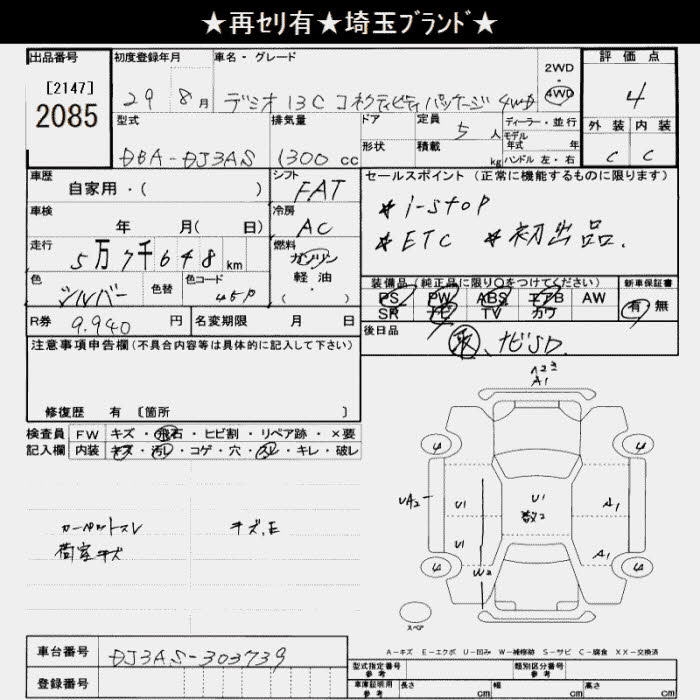 ★再セリ有★埼玉ﾌﾞﾗﾝﾄﾞ★
出品番号 初度登録年月 車名・グレード 2WD・4WD 評価点
[2147]
2085
29 8月 デミオ 13C コネクティビティパッケージ 4WD 4
型式 排気量 ドア 定員 5人 ディーラー・並行 外装 内装
DBA-DJ3AS 1300cc 形状 積載 kg モデル年式 年 ハンドル 左・右 C C
車歴 自家用・( ) シフト FAT セールスポイント (正常に機能するものに限ります)
車検 年 月( 日) 冷房 AC
* i-stop
* ETC * 初出品.
走行 5万7千648km 燃料 ガソリン 軽油 ( ・ )
色 シルバー 色替 色コード 45P
装備品 (純正品に限り○をつけてください) 新車保証書
PS PW ABS エアB AW 有 無
SR ナビ TV カワ
R券 9.940円 名変期限 月 日
後日品 取、ナビSD.
注意事項申告欄(不具合内容等は具体的に記入して下さい)
修復歴 有 〔箇所 〕
検査員 FW キズ・飛石・ヒビ割・リペア跡・×要
記入欄 内装 キズ・汚レ・コゲ・穴・スレ・キレ・破レ
カーペットスレ キズ、E
荷室キズ
A1
4 4
UA2 U1 U1 A1
数2
U1 A1
W2
4 4
スペア
A－キズ E－エクボ U－凹み W－補修跡 S－サビ C－腐食 XX－交換済
車台番号 DJ3AS-303739
登録番号
型式指定番号 参考 類別区分番号 参考
車庫証明用 参考 長さ cm 幅 cm 高さ cm